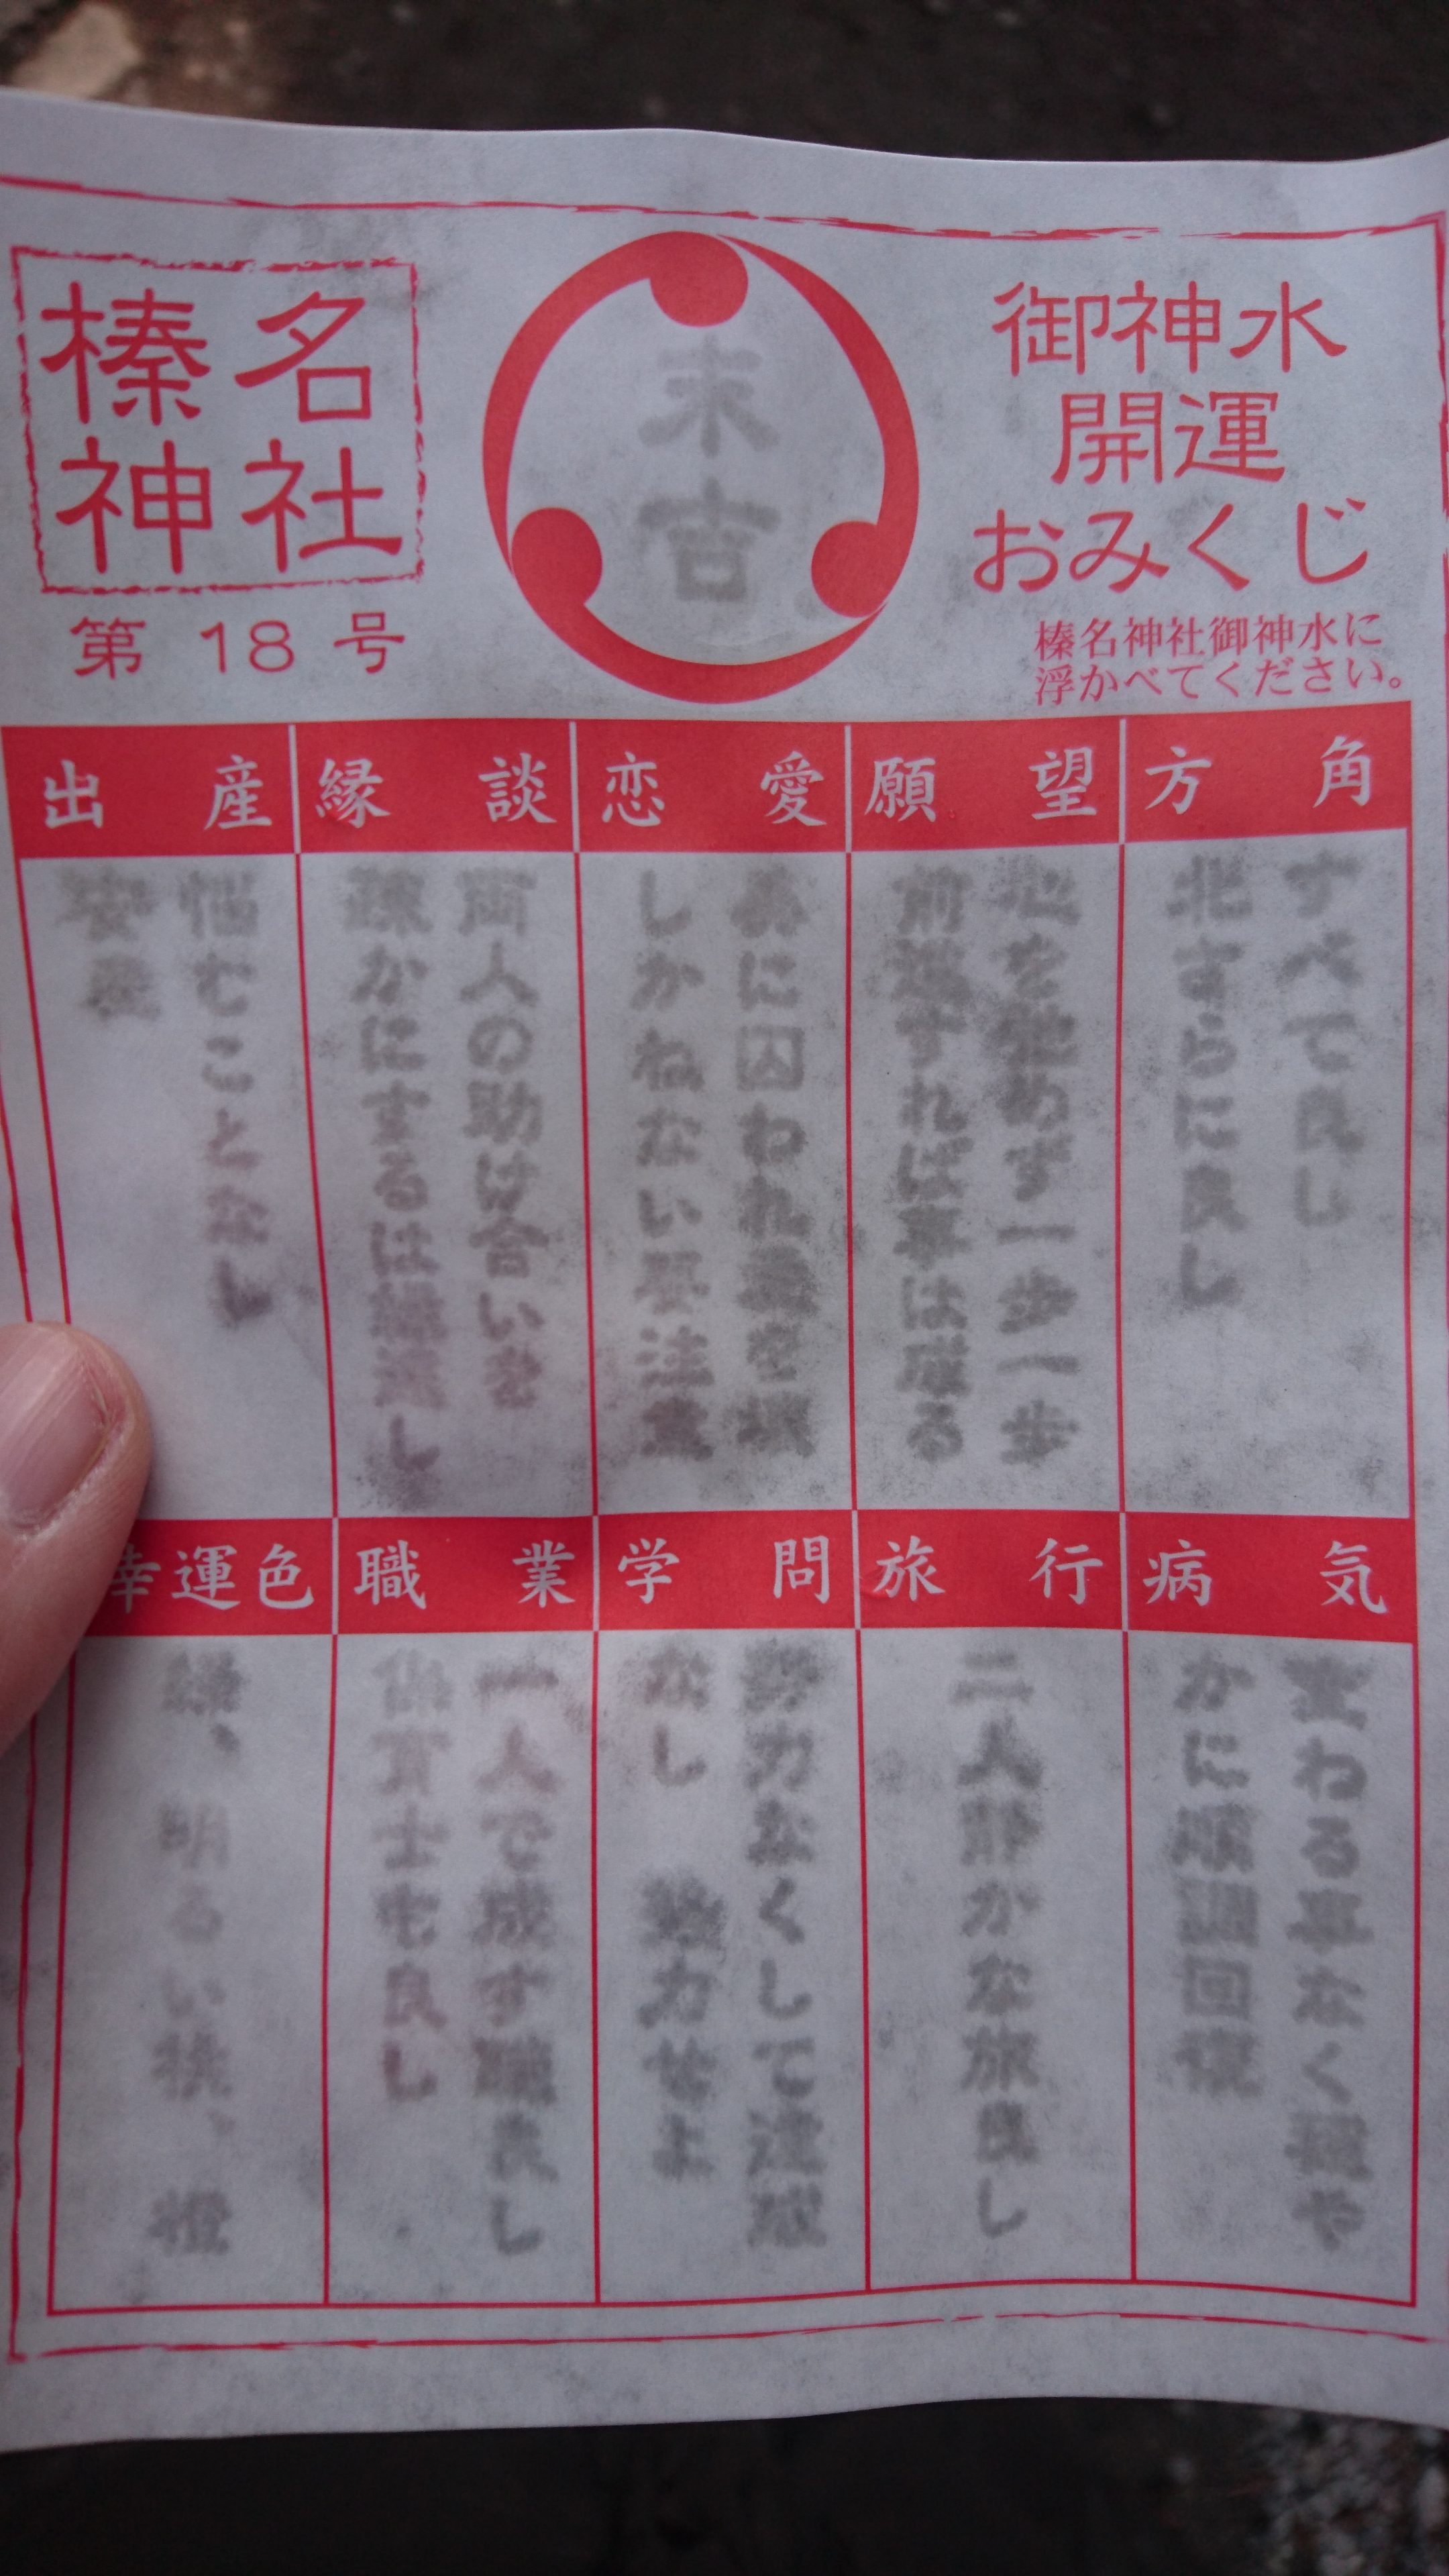 御神水
開運
おみくじ
榛名神社御神水に
浮かべてください。
末吉
榛名
神社
第 18 号
方角
すべて良し
北さらに良し
願望
を弛めず一歩一歩
前進すれば事は成る
恋愛
に囚われを
しかねない要注意
縁談
両人の助け合いを
疎かにするは縁遠し
出産
悩むことなし
安産
病気
変わる事なく穏や
かに順調回復
旅行
二人静かな旅良し
学問
努力なくして達成
なし 努力せよ
職業
一人で成す職良し
保育士も良し
幸運色
緑、明るい桃、橙